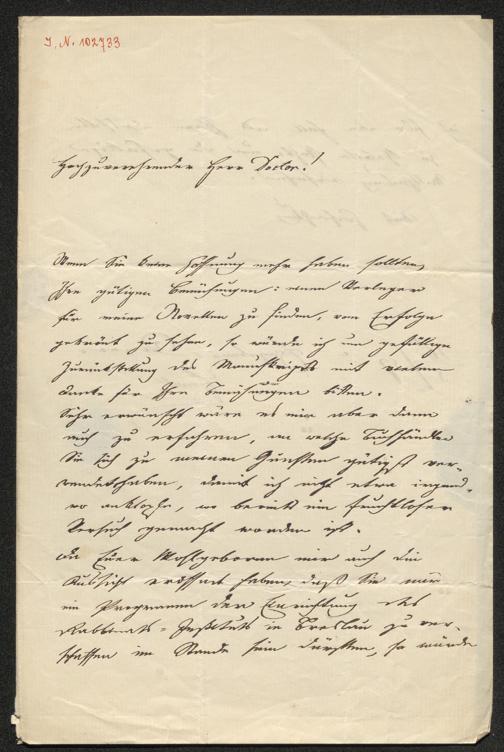 I. N. 102733
Hochzuverehrender Herr Doctor!
Wenn Sie keine Hoffnung mehr haben sollten,
Ihre gütigen Bemühungen: einen Verleger
für meine Novellen zu finden, von Erfolge
gekrönt zu sehen, so würde ich um gefällige
Zurückstellung des Manuskripts mit vielem
Danke für Ihre Bemühungen bitten.
Sehr erwünscht wäre es mir aber dann
auch zu erfahren, an welche Buchhändler
Sie sich zu meinen Gunsten gütigst ver-
wendet haben, damit ich nicht etwa irgend-
wo anklopfe, wo bereits ein fruchtloser
Versuch gemacht worden ist.
Da Euer Wohlgeboren mir auch die
Aussicht eröffnet haben, daß Sie mir
ein Programm der Einrichtung des
Rabbinats-Instituts in Breslau zu ver-
schaffen im Stande sein dürften, so würde